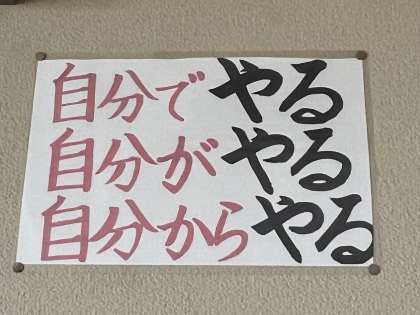 自分でやる
自分がやる
自分からやる